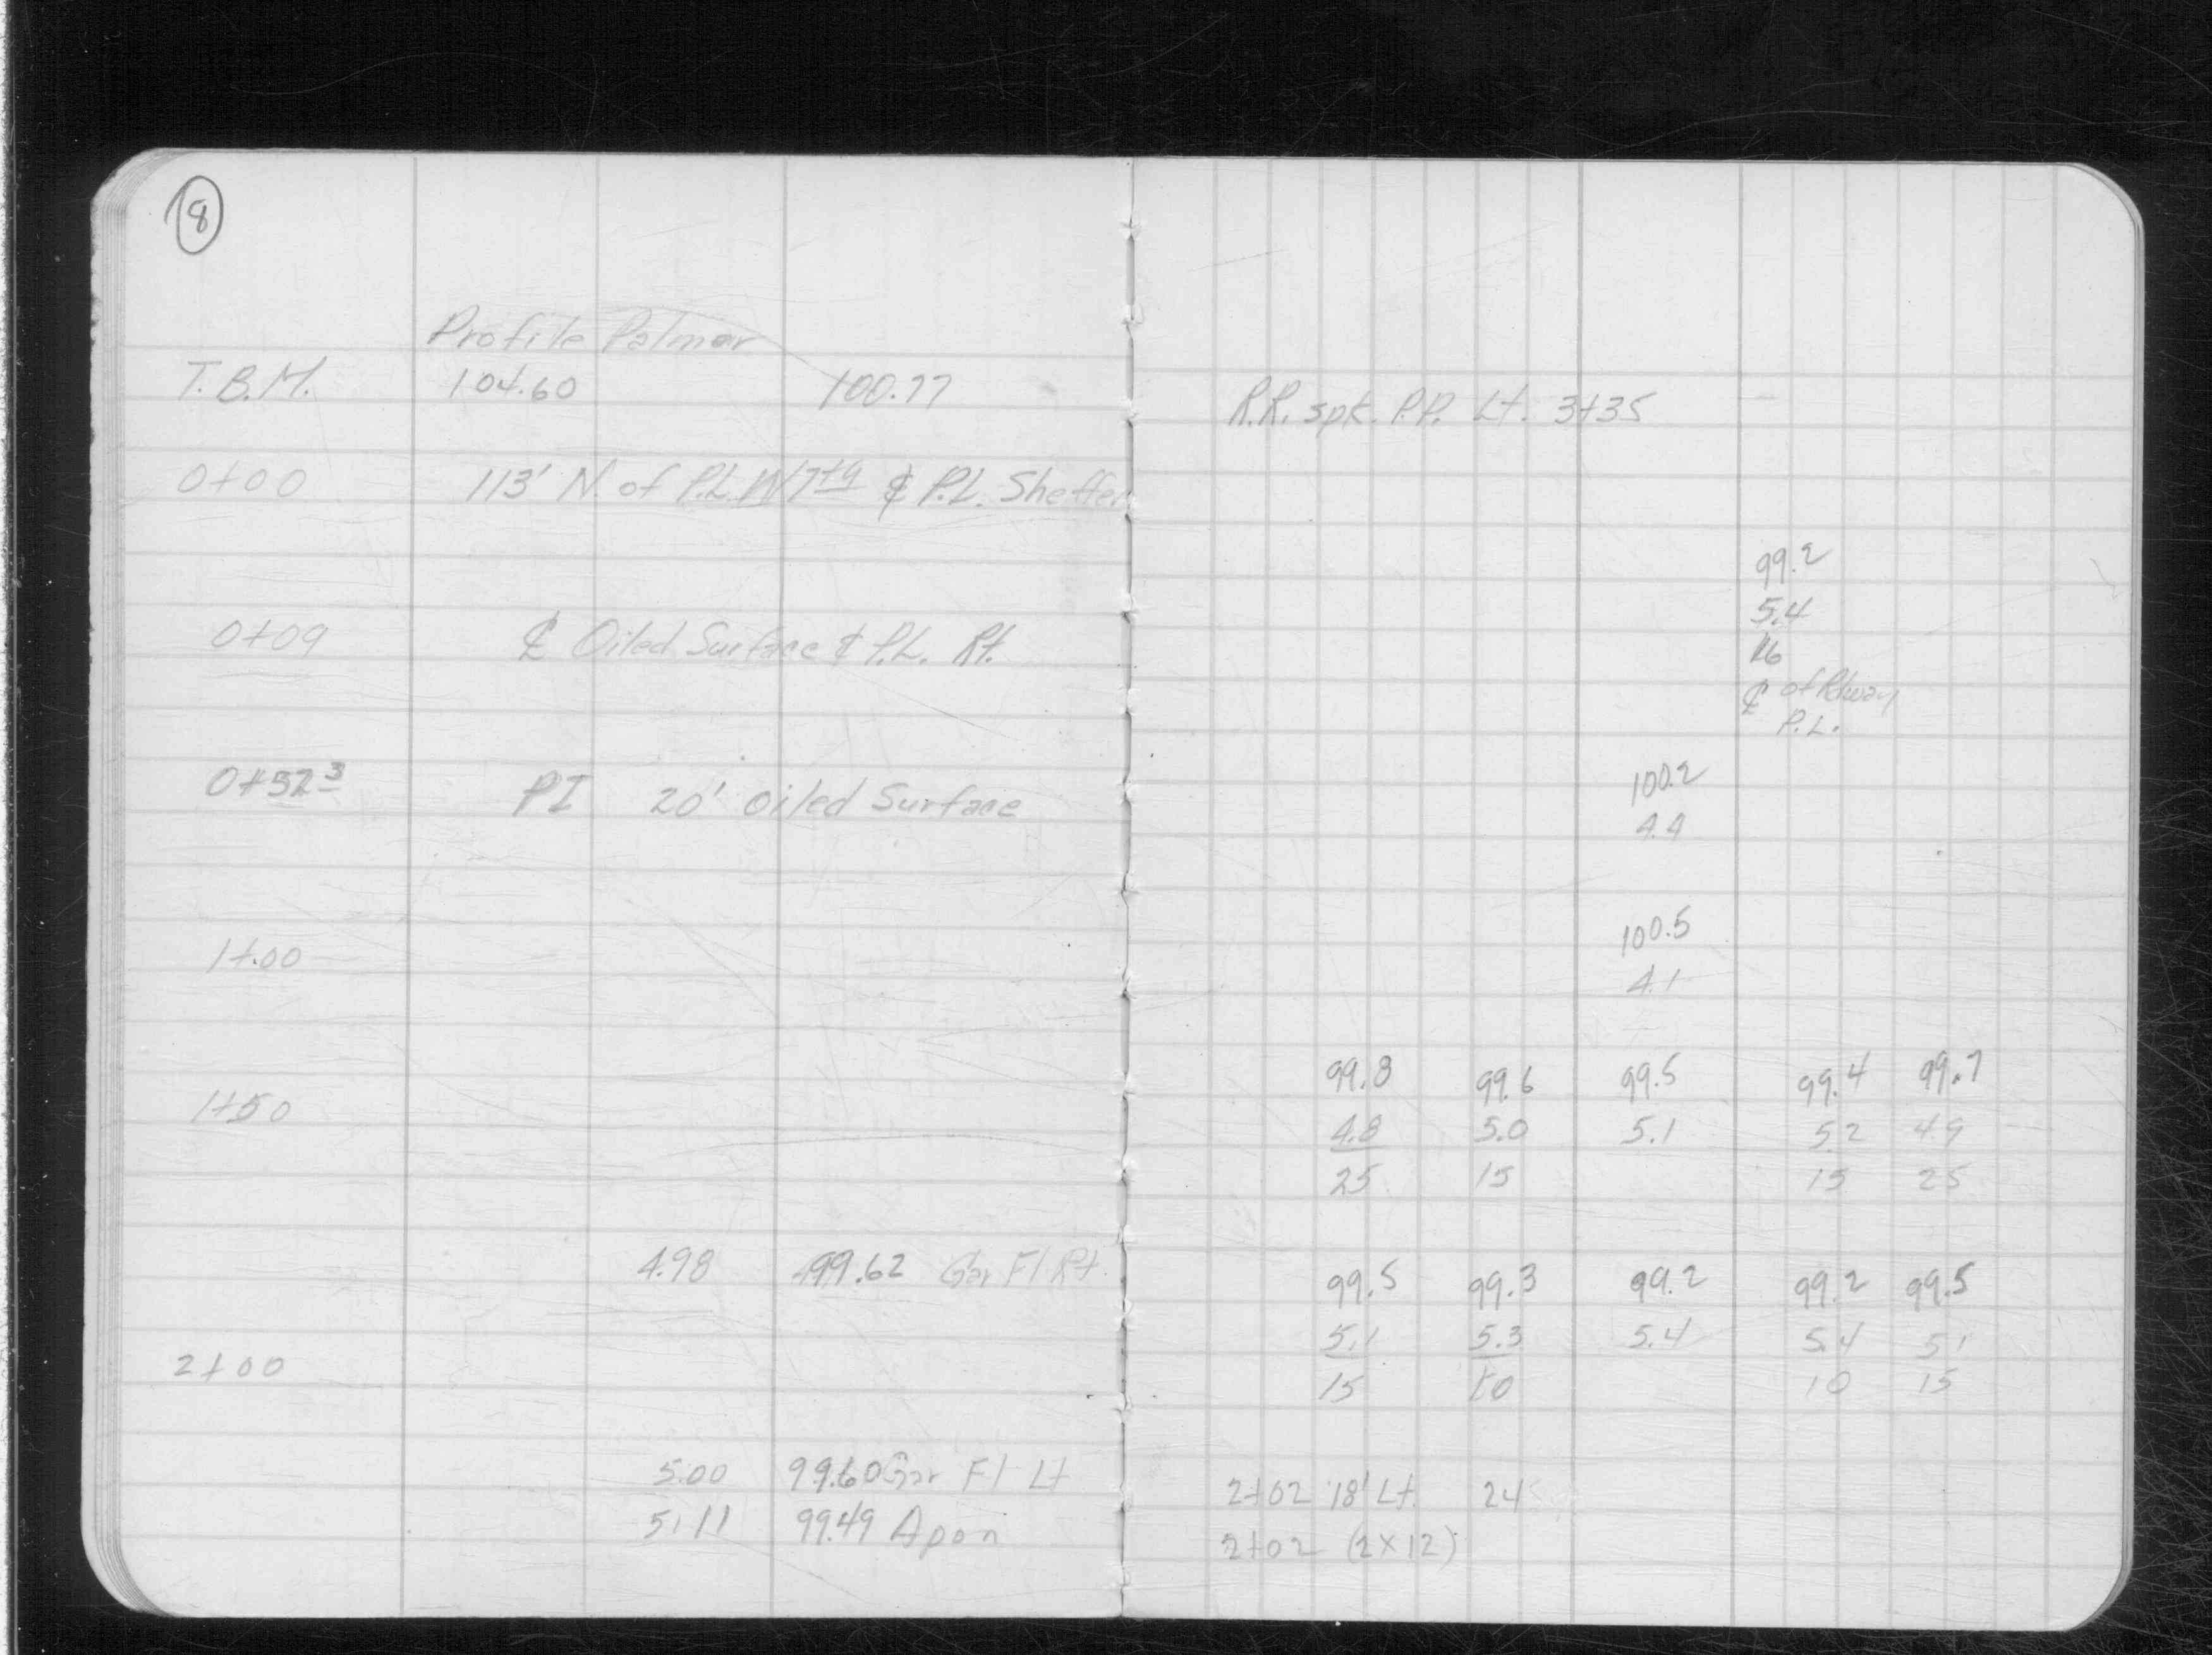 8
Profile Palmer
T.B.M. 104.60 100.77 R.R. spk. P.P. Lt. 3+35
0+00 113' N. of P.L. W 7th ¢ P.L. Sheffer
99.2
5.4
0+09 ℄ Oiled Surface ¢ P.L. Rt. 16
℄ of Rdway
P.L.
0+52 3 PI 20' Oiled Surface 100.2
4.4
1+00 100.5
4.1
99.8 99.6 99.5 99.4 99.7
1+50 4.8 5.0 5.1 5.2 4.9
25 15 15 25
4.98 99.62 Gar Fl Rt.
99.5 99.3 99.2 99.2 99.5
5.1 5.3 5.4 5.4 5.1
2+00 15 10 10 15
5.00 99.60 Gar Fl Lt 2+02 18' Lt. 24
5.11 99.49 Apon 2+02 (2x12)